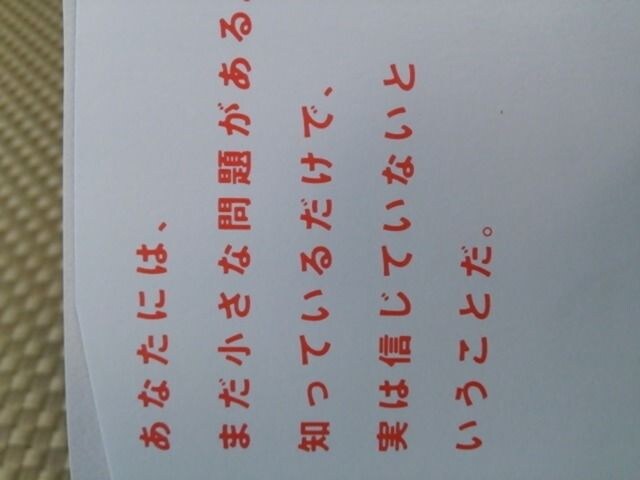 あなたには、
まだ小さな問題がある。
知っているだけで、
実は信じていないと
いうことだ。